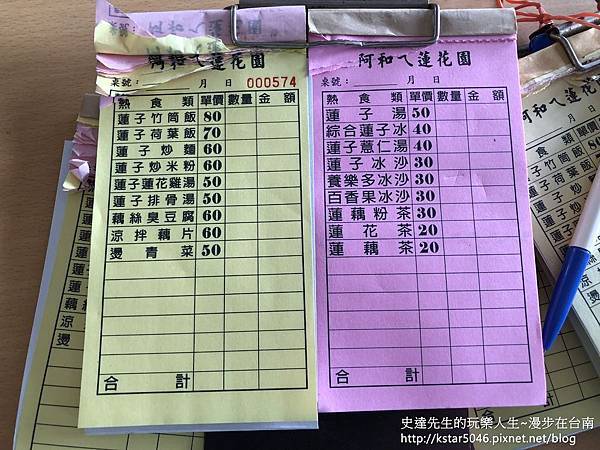 阿和ㄟ蓮花園
桌號： 月 日 000574
熱食類 單價 數量 金額
蓮子竹筒飯 80
蓮子荷葉飯 70
蓮子炒麵 60
蓮子炒米粉 60
蓮子蓮花雞湯 50
蓮子排骨湯 50
藕絲臭豆腐 60
涼拌藕片 60
燙青菜 50
合計
阿和ㄟ蓮花園
桌號： 月 日
熟食類 單價 數量 金額
蓮子湯 50
綜合蓮子冰 40
蓮子薏仁湯 40
蓮子冰沙 30
養樂多冰沙 30
百香果冰沙 30
蓮藕粉茶 30
蓮花茶 20
蓮藕茶 20
合計
阿和ㄟ蓮花園
月
史達先生的玩樂人生~漫步在台南
http://kstar5046.pixnet.net/blog